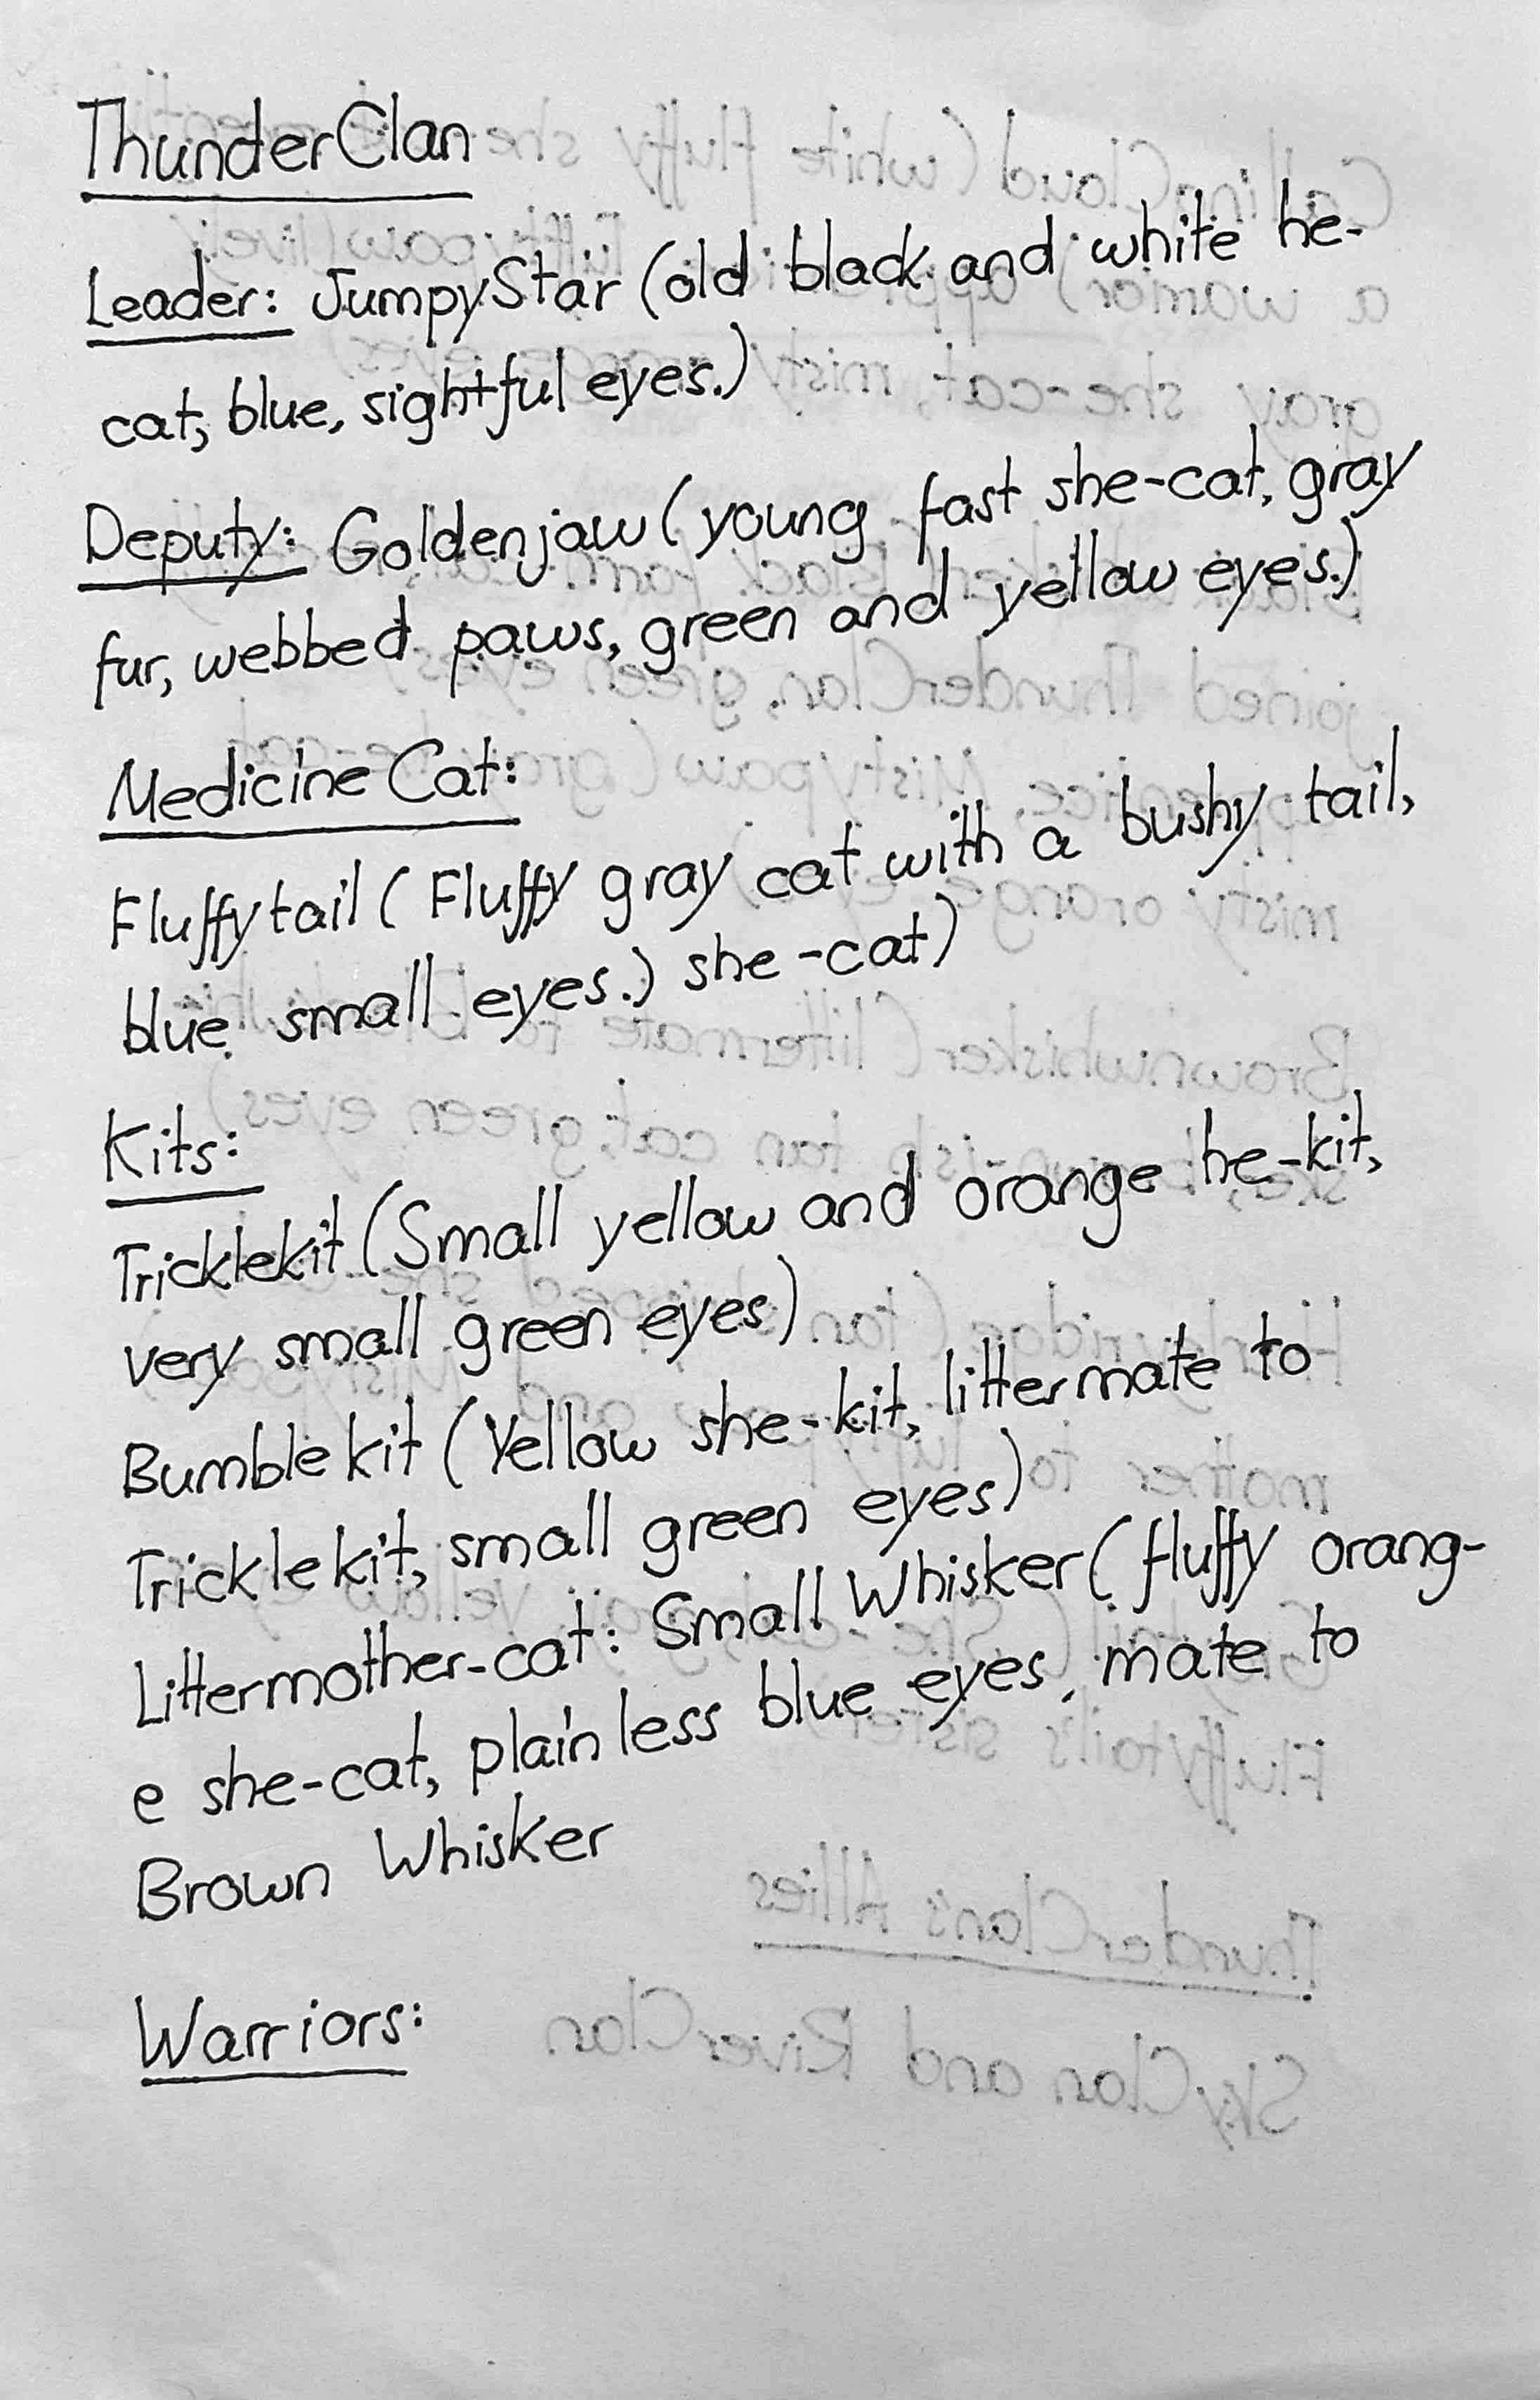 ThunderClan
Leader: JumpyStar (old black and white he-
cat, blue, sightful eyes.)
Deputy: Goldenjaw (young fast she-cat, gray
fur, webbed paws, green and yellow eyes.)
Medicine Cat:
Fluffytail (Fluffy gray cat with a bushy tail,
blue small eyes.) she-cat)
Kits:
Tricklekit (Small yellow and orange he-kit,
very small green eyes)
Bumblekit (Yellow she-kit, littermate to
Tricklekit, small green eyes)
Littermother-cat: Small Whisker (fluffy orang-
e she-cat, plainless blue eyes, mate to
Brown Whisker
Warriors: